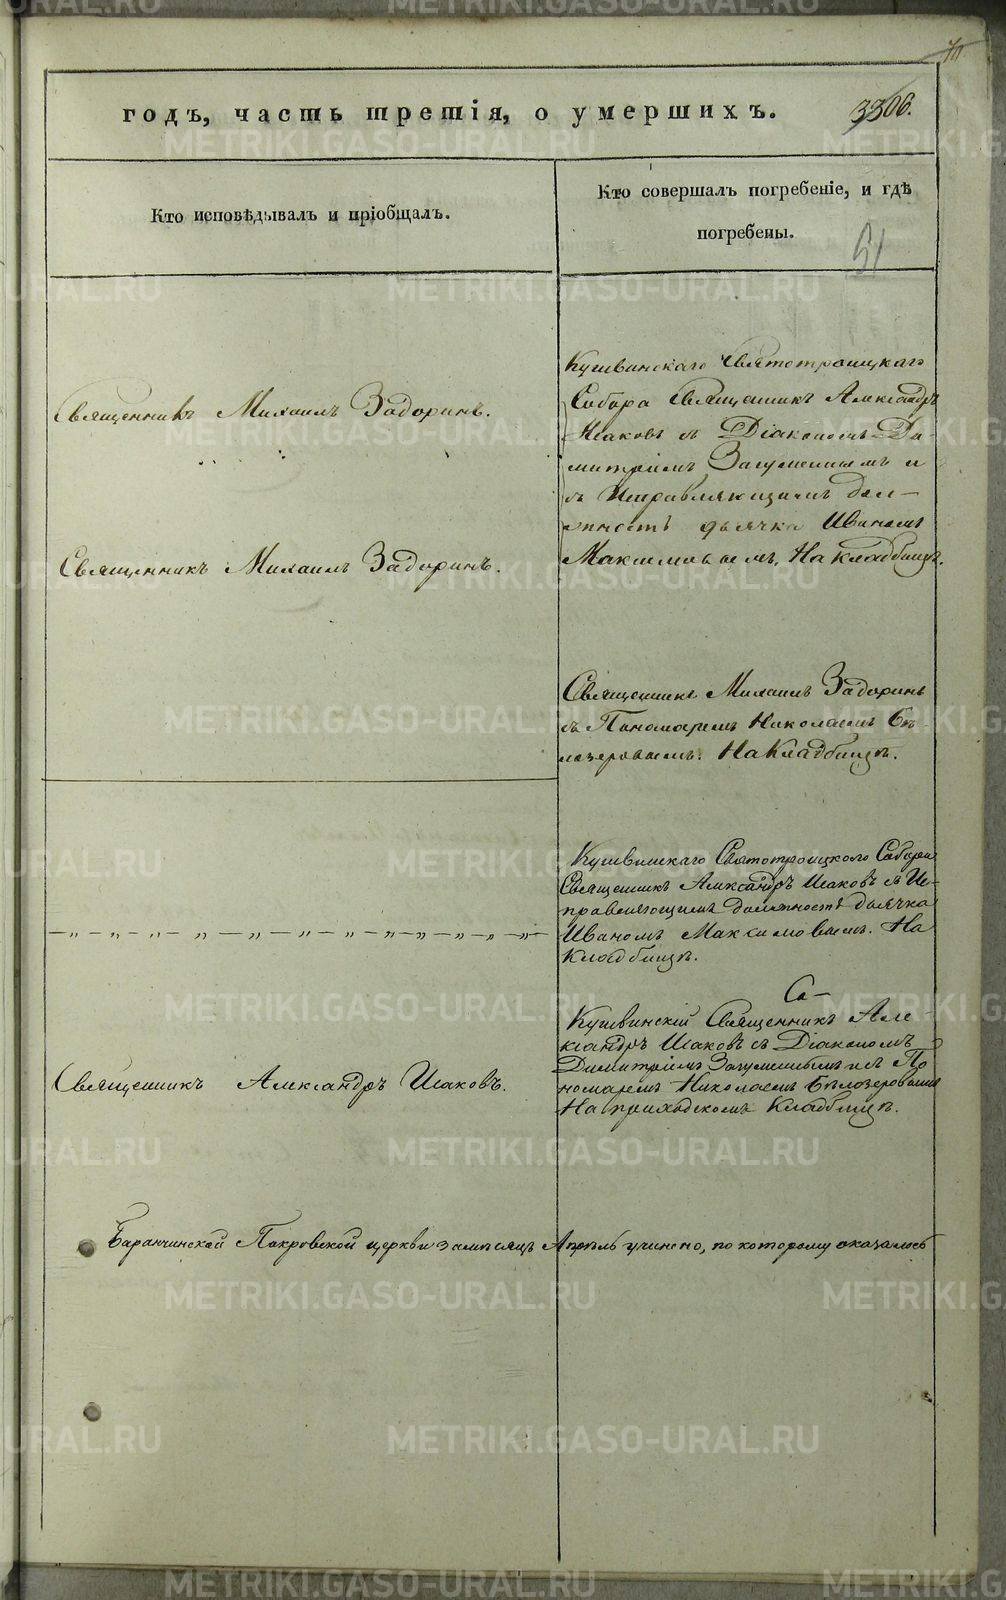 годъ, часть третія, о умершихъ.
3306.
Кто исповѣдывалъ и пріобщалъ.
Кто совершалъ погребеніе, и гдѣ
погребены.
51
Священникъ Михаилъ Задоринъ.
Священникъ Михаилъ Задоринъ.
Кушвинскаго Святотроицкаго
Собора Священникъ Александръ
Исаковъ съ Діакономъ Ди-
митріемъ Загуменнымъ и
съ Исправляющимъ дол-
жность дьячка Иваномъ
Максимовымъ. На кладбищѣ.
Священникъ Михаилъ Задоринъ
съ Пономаремъ Николаемъ Бѣ-
лозеровымъ. На Кладбищѣ.
Кушвинскаго Святотроицкаго Собора
Священникъ Александръ Исаковъ съ Ис-
правляющимъ должность дьячка
Иваномъ Максимовымъ. На
Кладбищѣ.
Священникъ Александръ Исаковъ.
Кушвинскій Священникъ Але-
ксандръ Исаковъ съ Діакономъ
Димитріемъ Загуменнымъ и съ По
номаремъ Николаемъ Бѣлозеровымъ
На приходскомъ Кладбищѣ.
Баранчинской Покровской церкви за мѣсяцъ Апрѣль учинено, по которому оказалось
METRIKI.GASO-URAL.RU